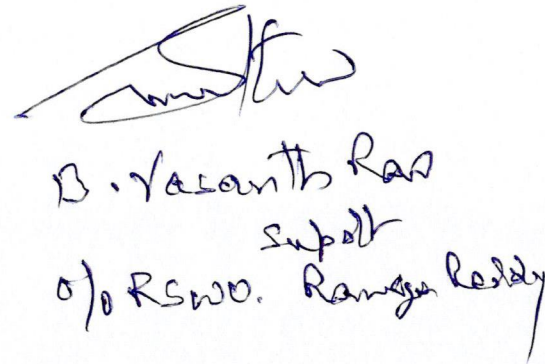 B. Vasanth Rao
Supdt
O/o RSWO. Ranga Reddy